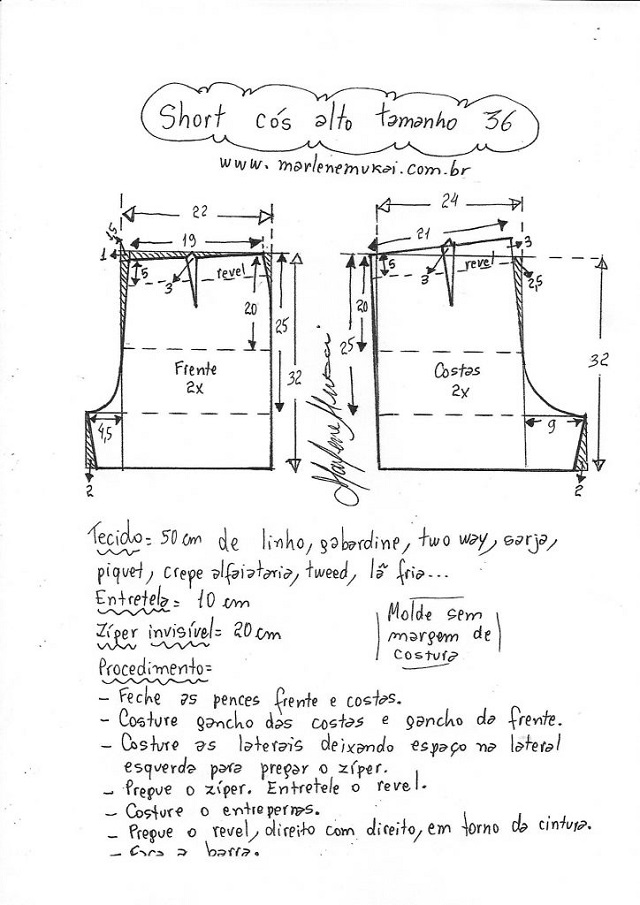 Short cós alto tamanho 36
www.marlenemukai.com.br
22
24
19
21
1,5
1
5
3
revel
20
25
32
Frente
2x
4,5
2
3
5
3
revel
2,5
20
25
32
Costas
2x
9
2
Marlene Mukai
Tecido= 50 cm de linho, gabardine, two way, sarja,
piquet, crepe alfaiataria, tweed, lã fria...
Entretela= 10 cm
Zíper invisível= 20 cm
Molde sem
margem de
costura
Procedimento=
- Feche as pences frente e costas.
- Costure gancho das costas e gancho da frente.
- Costure as laterais deixando espaço na lateral
esquerda para pregar o zíper.
- Pregue o zíper. Entretele o revel.
- Costure o entrepernas.
- Pregue o revel, direito com direito, em torno da cintura.
- Faça a barra.